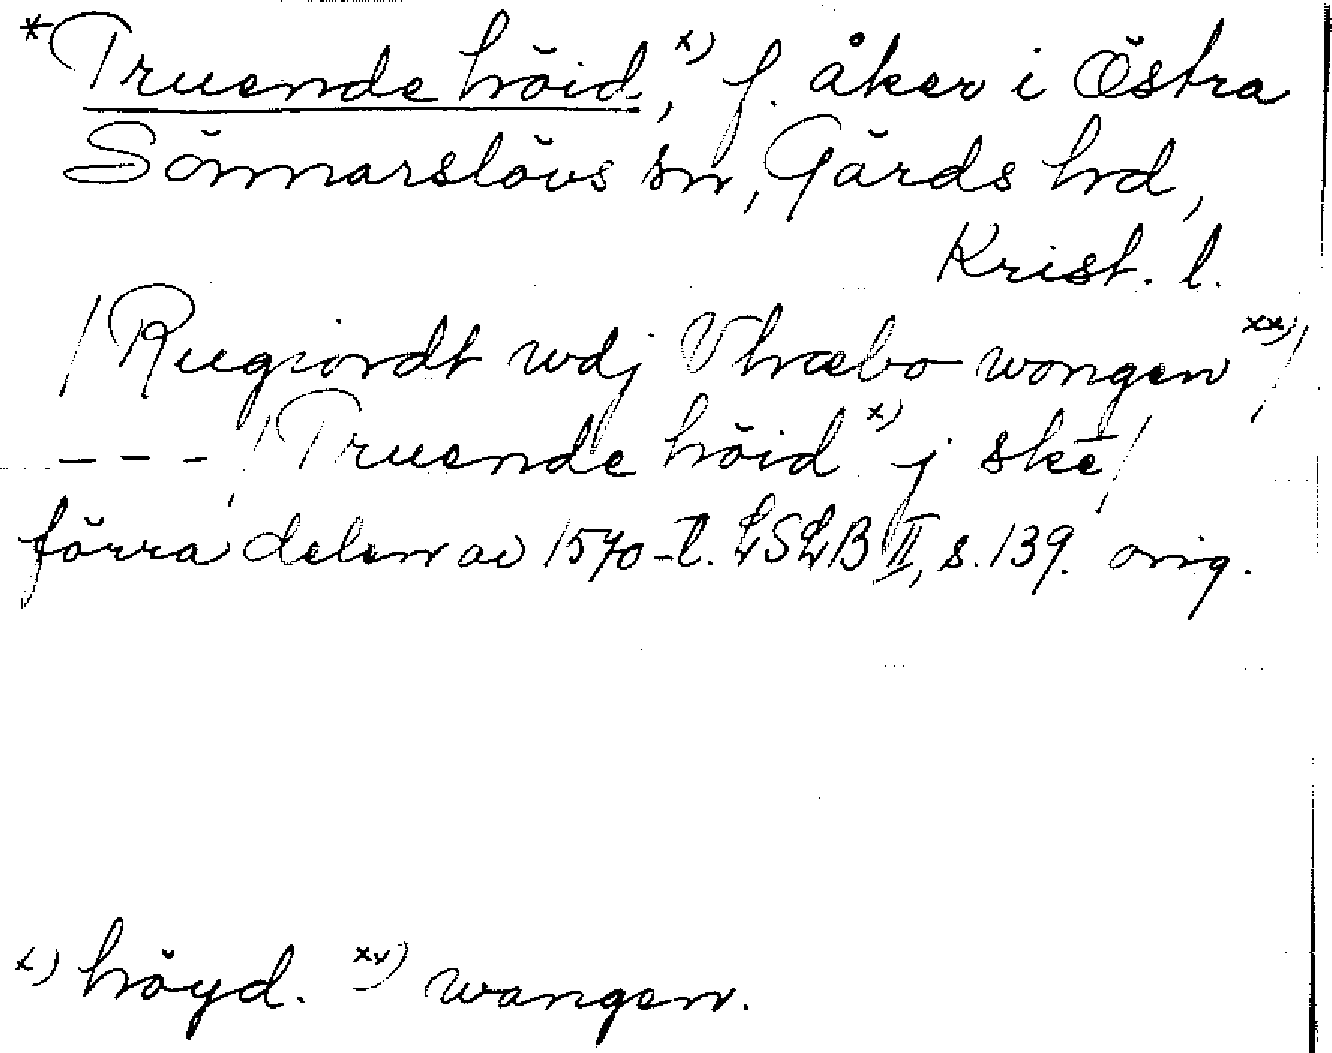 *Truende höid,ˣ⁾ f. åker i Östra
Sönnarslövs sn, Gärds hd,
Krist. l.
/Rugiordt wdj Vhræbo wongenˣˣ⁾/
---/Truende höidˣ⁾ j skē/
förra delen av 1570-t. LSLB II, s. 139. orig.
ˣ⁾ höyd. ˣˣ⁾ wangen.